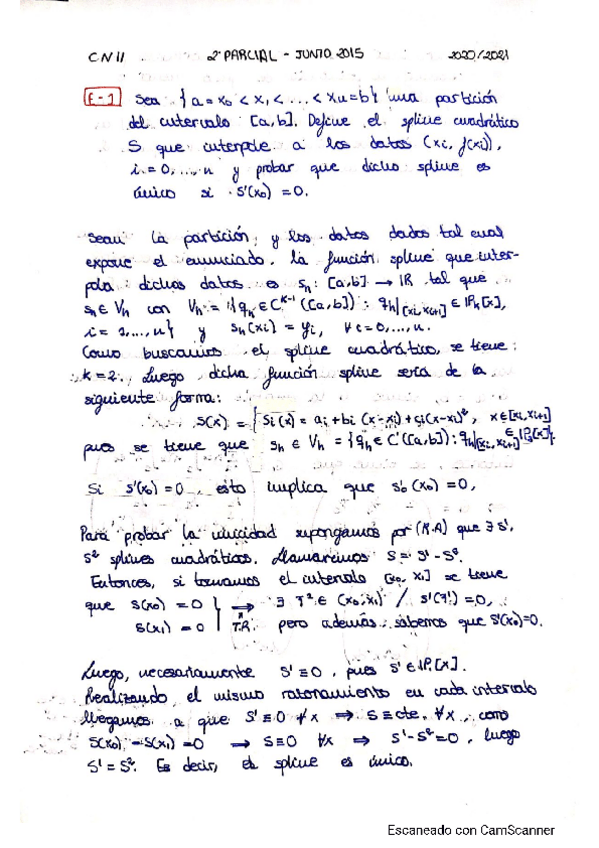 CN II 2º PARCIAL - JUNIO 2015 2020/2021
E-1 Sea {a = x₀ < x₁ < ... < xₙ = b} una partición
del intervalo [a,b]. Define el spline cuadrático
S que interpole a los datos (xi, f(xi)),
i = 0,...,n y probar que dicho spline es
único si S'(x₀) = 0.
Sean la partición y los datos dados tal cual
expone el enunciado. La función spline que inter-
pola dichos datos es sₕ: [a,b] → ℝ tal que
sₕ ∈ Vₕ con Vₕ = {qₕ ∈ Cᴷ⁻¹([a,b]) : qₕ|[xi,xi+1] ∈ ℙₖ[x],
y sₕ(xi) = yi,
Como buscamos el spline cuadrático, se tiene:
k = 2. Luego dicha función spline sería de la
siguiente forma:
S(x) = { Si(x) = ai + bi (x-xi) + ci(x-xi)², x ∈ [xi, xi+1]
pues se tiene que sₕ ∈ Vₕ = {qₕ ∈ C'([a,b]) : qₕ|[xi,xi+1] ∈ ℙ₂[x]}.
Si s'(x₀) = 0, esto implica que s'₀(x₀) = 0,
Para probar la unicidad supongamos por (R.A) que ∃ S¹,
S² splines cuadráticos. Llamaremos S = S¹ - S².
Entonces, si tomamos el intervalo [x₀, x₁] se tiene
que S(x₀) = 0 } → ∃ ∈ (x₀,x₁) / = 0,
S(x₁) = 0 T.R. pero además sabemos que S'(x₀)=0.
Luego, necesariamente S' ≡ 0, pues S' ∈ ℙ₁[x].
Realizando el mismo razonamiento en cada intervalo
llegamos a que S' ≡ 0 ∀x ⇒ S ≡ cte, ∀x, como
S(x₀) = S(x₁) = 0 → S ≡ 0 ∀x ⇒ S¹-S² = 0, luego
S¹ = S². Es decir, el spline es único.
Escaneado con CamScanner